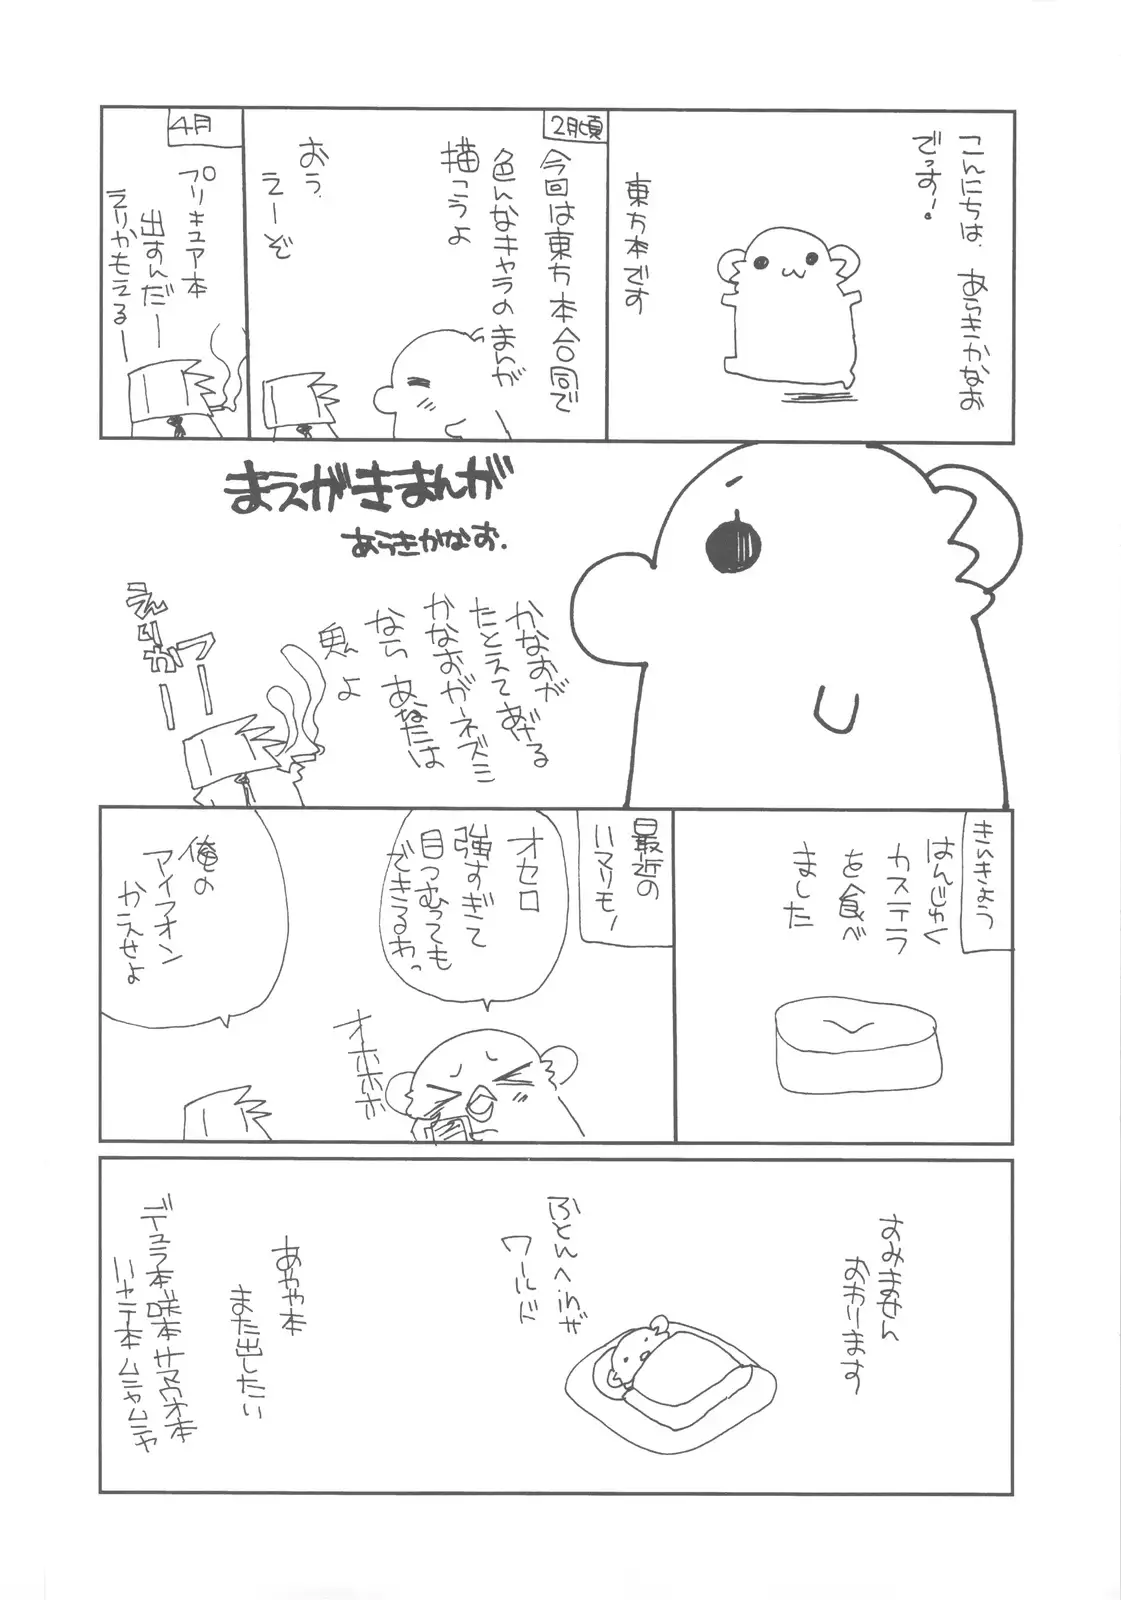 こんにちは、あらきかなお
でっす!
東方本です
2月頃
今回は東方本合同で
色んなキャラのまんが
描こうよ
おう、
えーぞ
4月
プリキュア本
出すんだー
えりかもえるー
まえがきまんが
あらきかなお.
かなおが
たとえてあげる
かなおがネズミ
なら あなたは
魚よ
えりかー
つー
きんきょう
はんじゅく
カステラ
を食べ
ました
最近の
ハマリモノ
オセロ
強すぎて
目つむっても
できるわっ
オホホホ
俺の
アイフォオン
かえせよ
すみません
おわります
ふとんへinザ
ワールド
あやや本
また出したい
デュラ本咲本サマウオ本
ハヤテ本ムニャムニャ